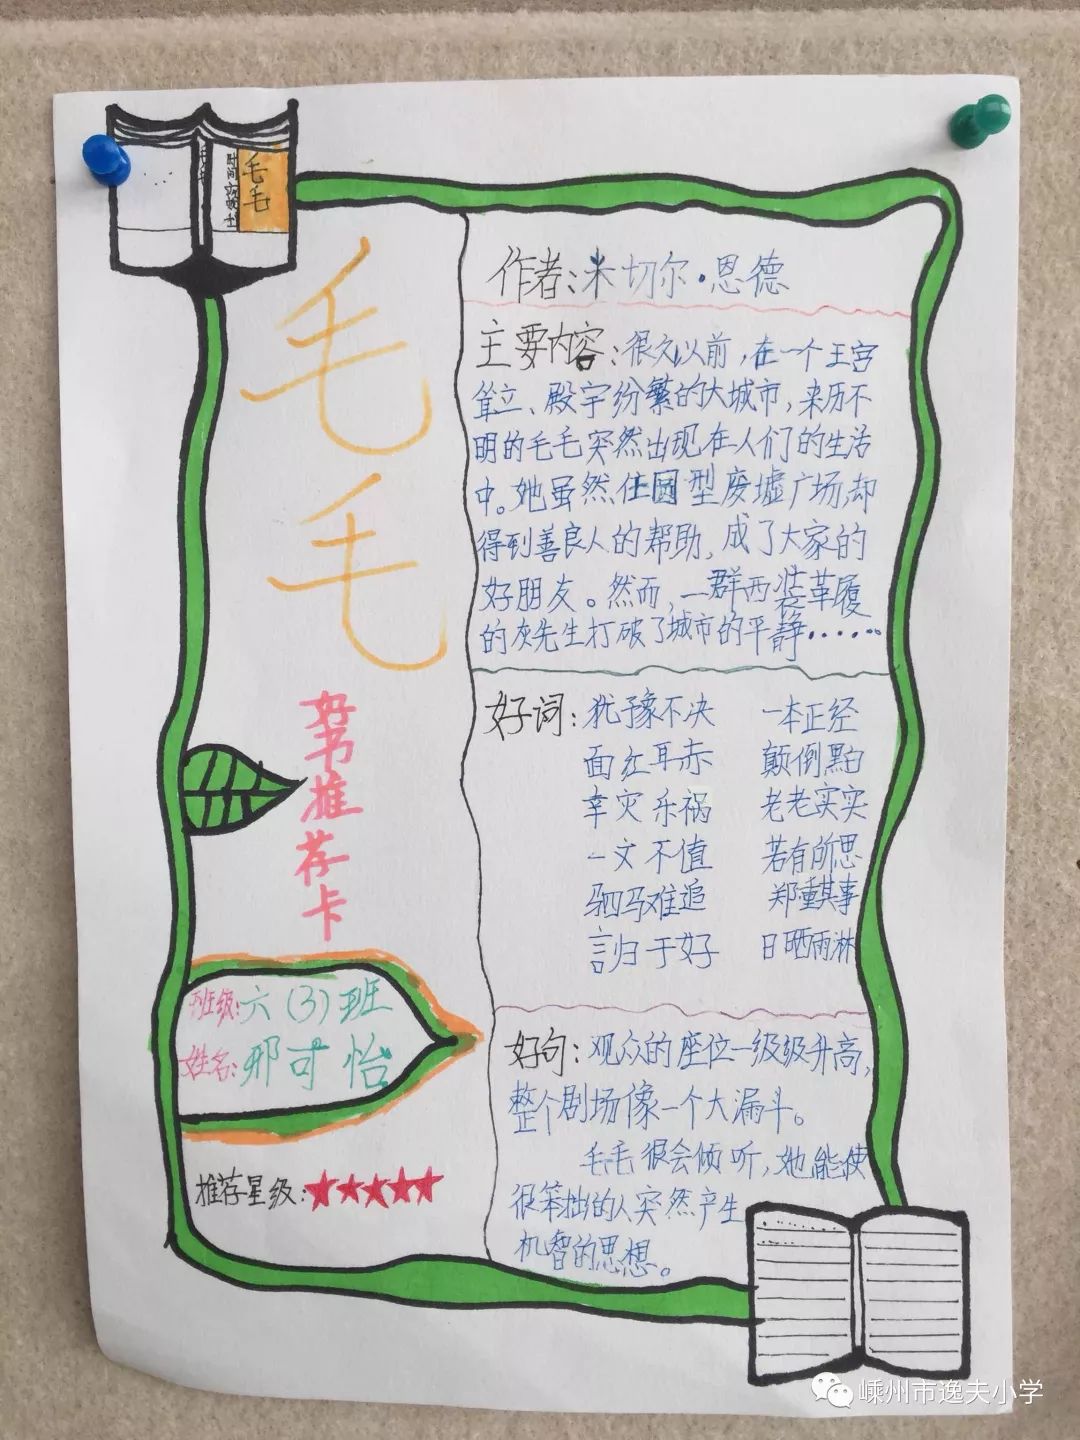 毛毛
毛
毛
好书推荐卡
班级:六(3)班
姓名:邢可怡
推荐星级:★★★★★
作者:米切尔·恩德
主要内容:很久以前,在一个王宫
耸立、殿宇纷繁的大城市,来历不
明的毛毛突然出现在人们的生活
中。她虽然住圆型废墟广场,却
得到善良人的帮助,成了大家的
好朋友。然而,一群西装革履
的灰先生打破了城市的平静······
好词:犹予豫不决 一本正经
面红耳赤 颠倒黑白
幸灾乐祸 老老实实
一文不值 若有所思
驷马难追 郑重其事
言归于好 日晒雨淋
好句:观众的座位一级级升高,
整个剧场像一个大漏斗。
毛毛很会倾听,她能使
很笨拙的人突然产生
机智的思想。
嵊州市逸夫小学